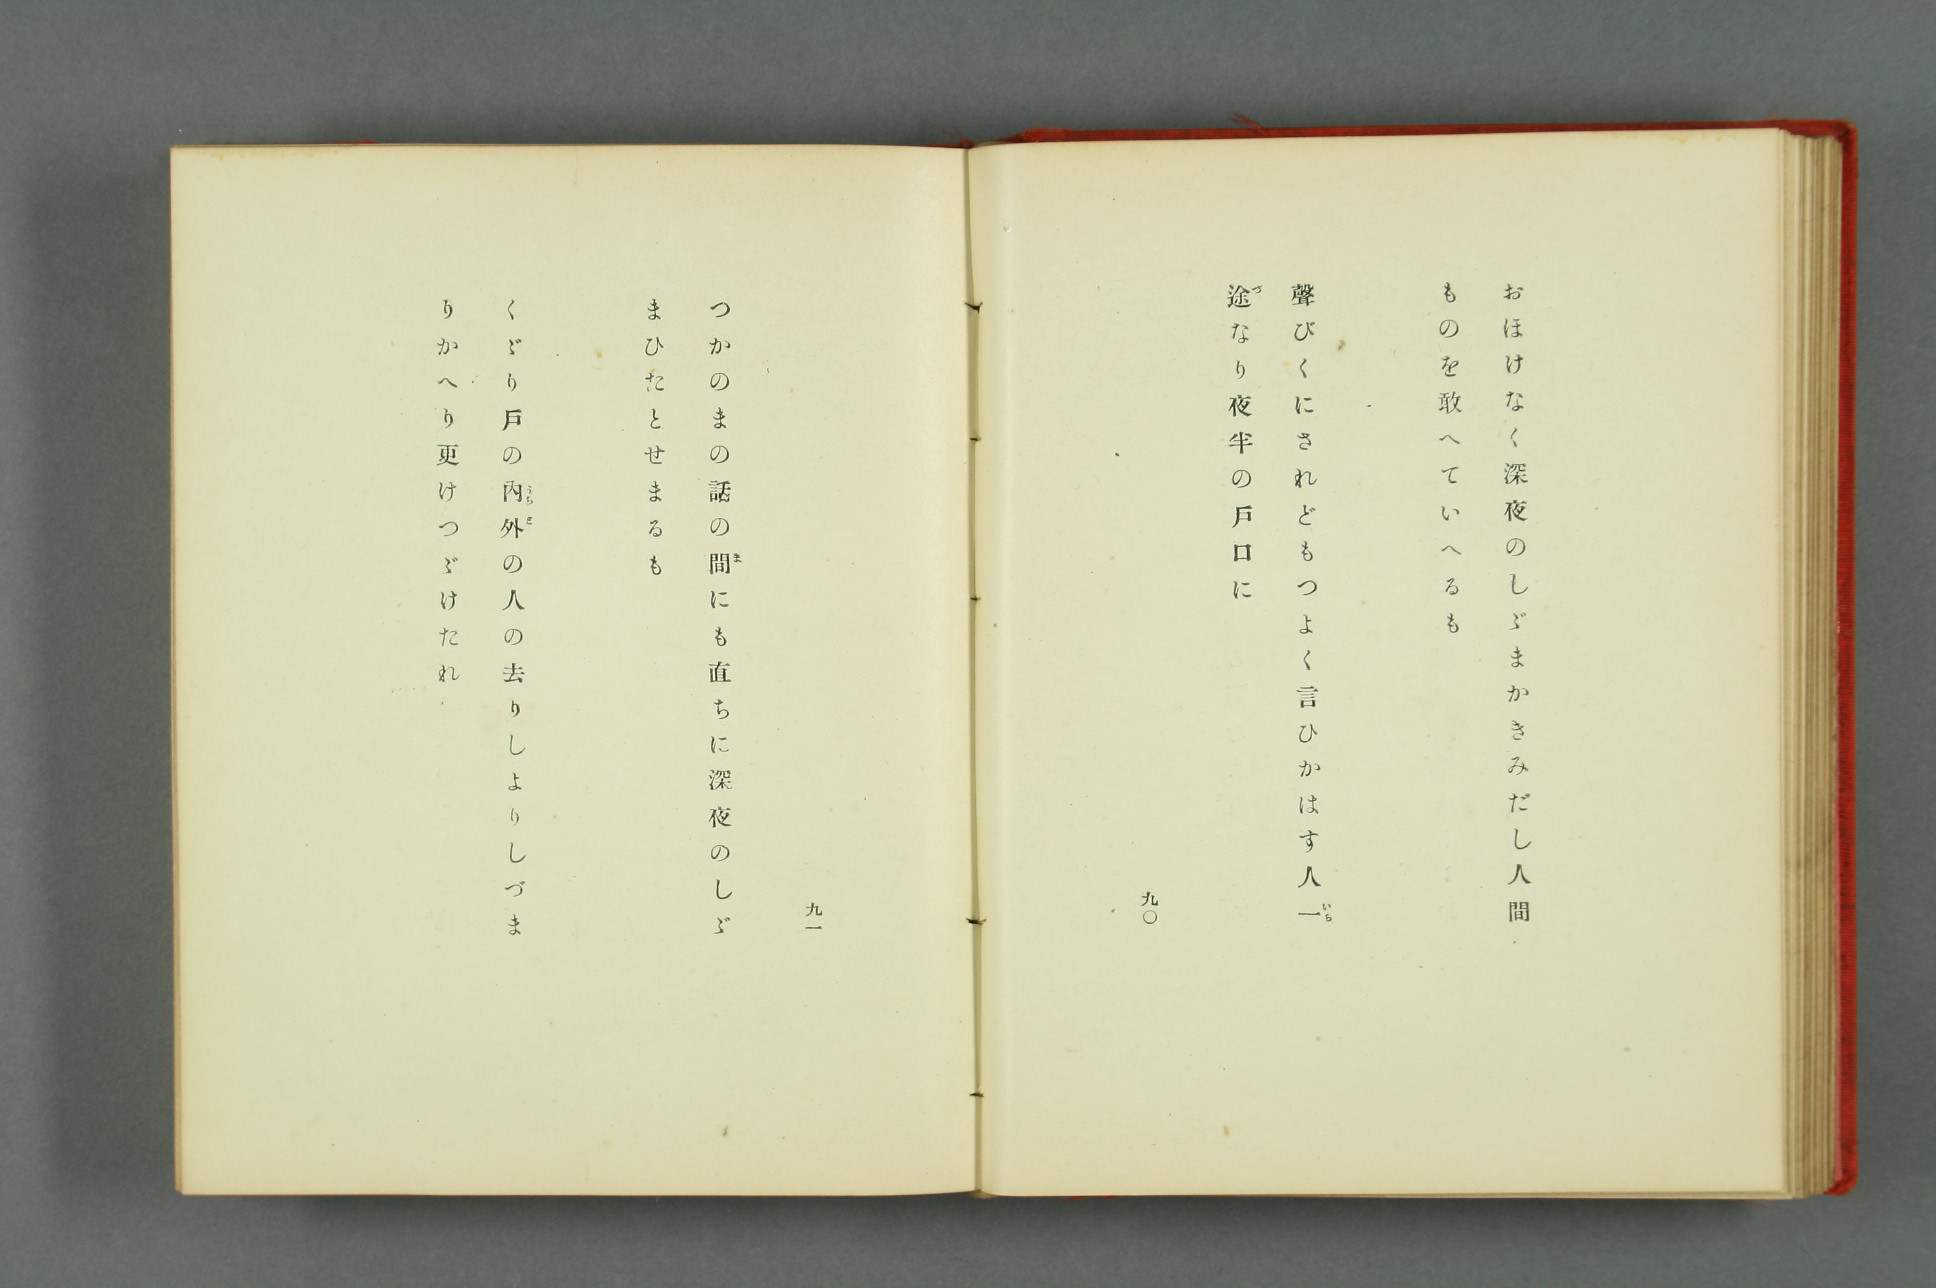 おほけなく深夜のしゞまかきみだし人間
ものを敢へていへるも
聲びくにされどもつよく言ひかはす人一いち
途づなり夜半の戸口に
九〇
つかのまの話の間まにも直ちに深夜のしゞ
まひたとせまるも
くゞり戸の内うち外との人の去りしよりしづま
りかへり更けつゞけたれ
九一